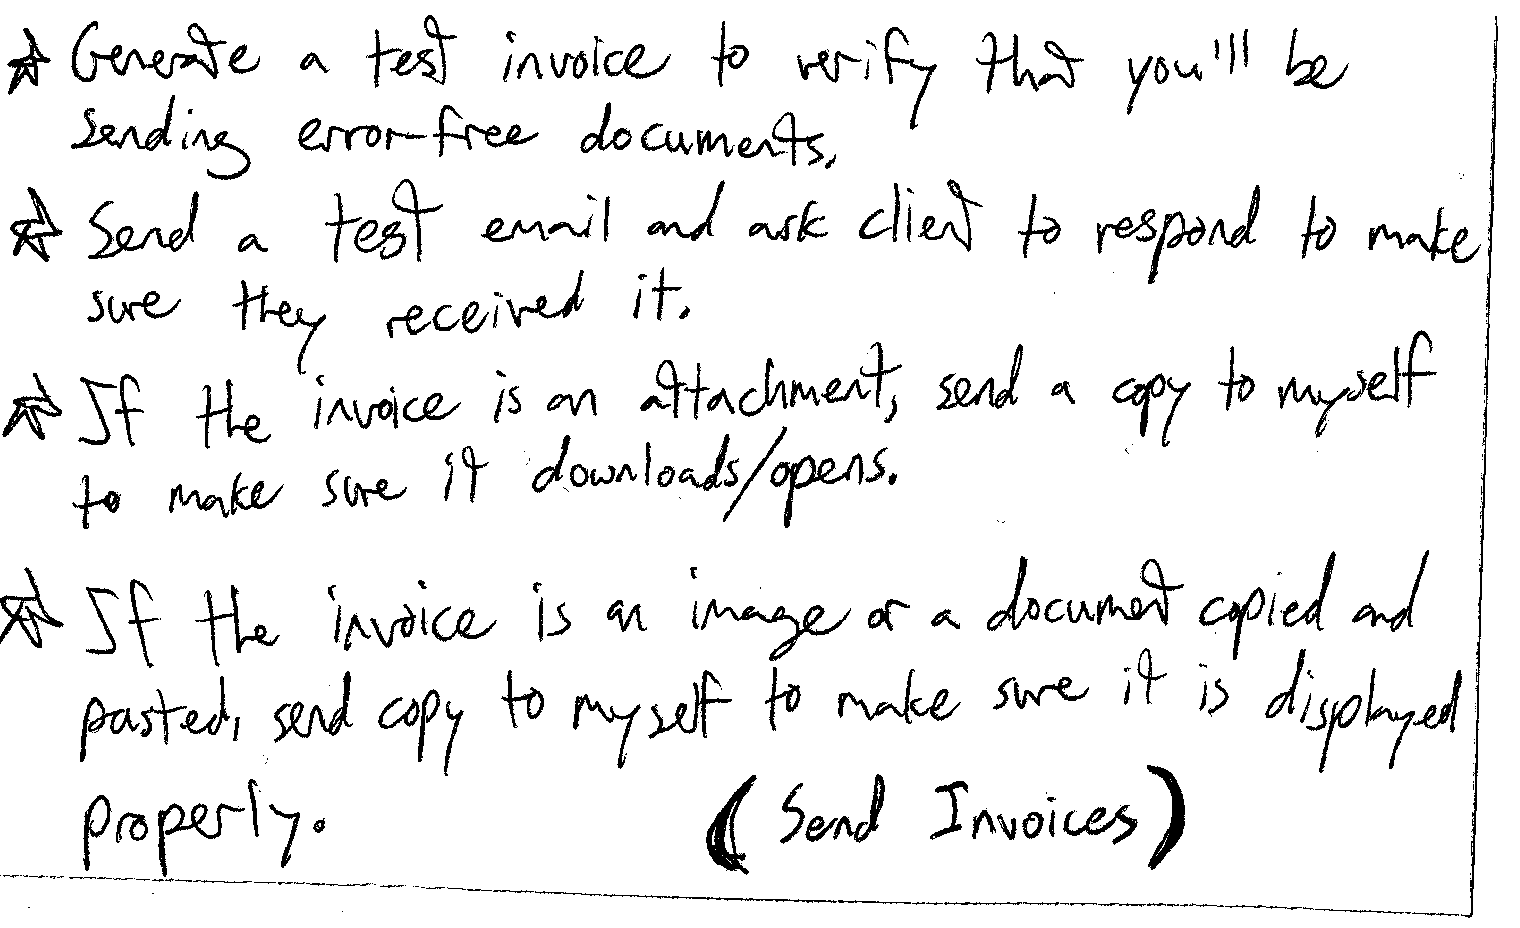 ☆ Generate a test invoice to verify that you'll be
sending error-free documents.
☆ Send a test email and ask client to respond to make
sure they received it.
☆ If the invoice is an attachment, send a copy to myself
to make sure it downloads/opens.
☆ If the invoice is an image or a document copied and
pasted, send copy to myself to make sure it is displayed
properly. (Send Invoices)